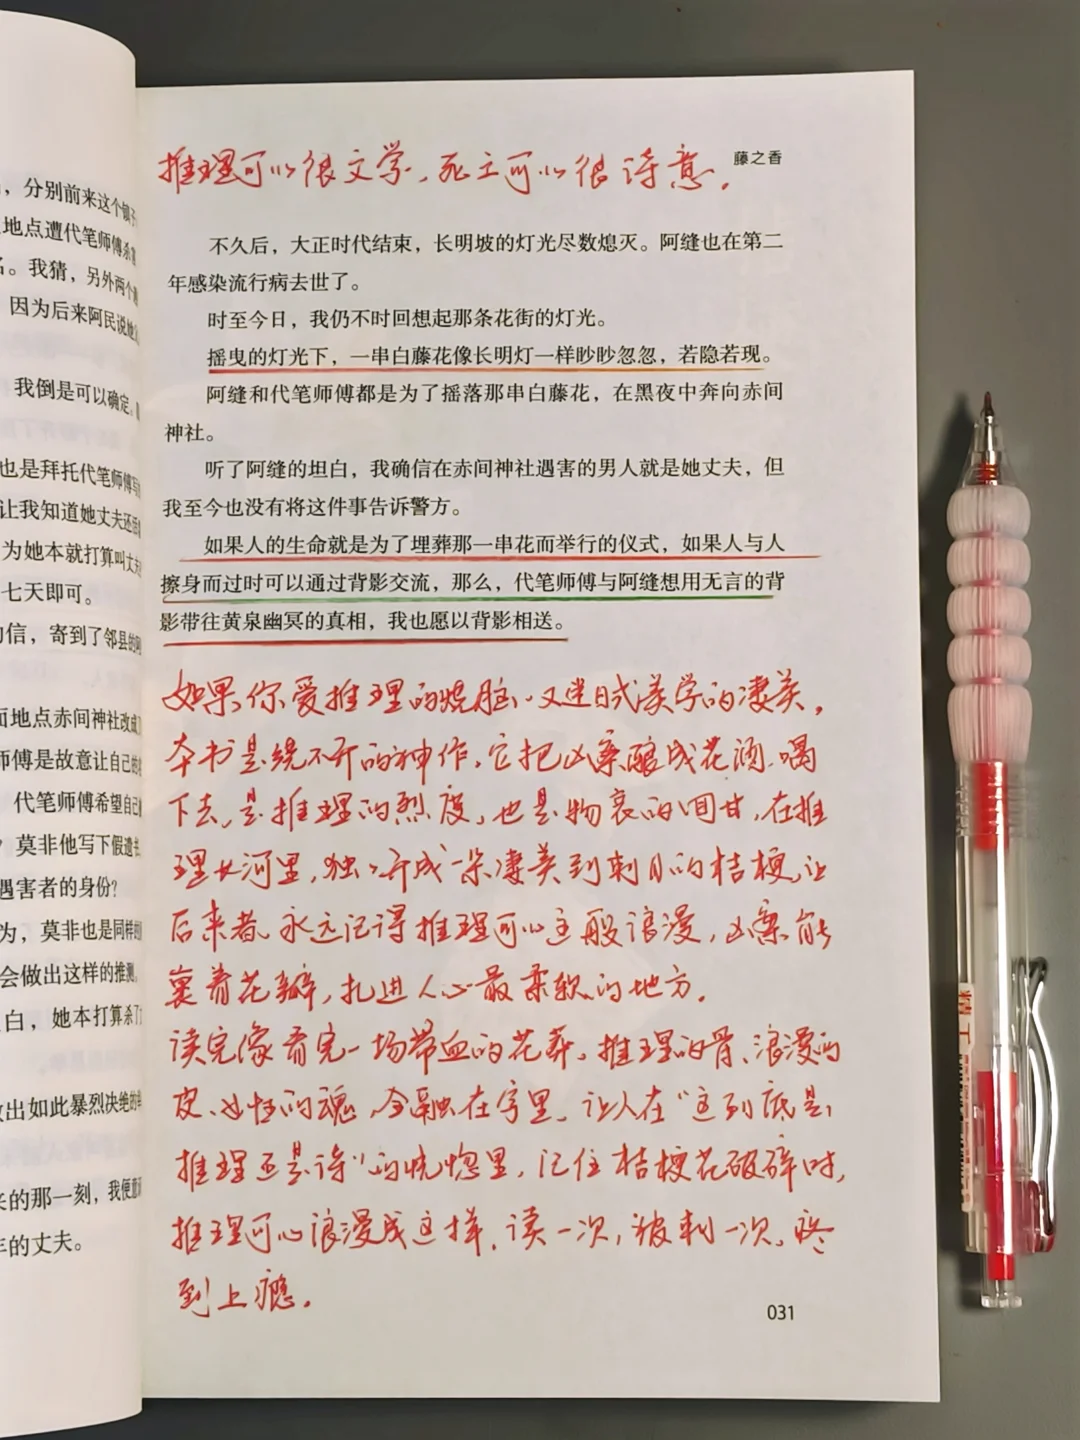 ，分别前来这个镇子
地点遭代笔师傅杀害
名。我猜，另外两个
因为后来阿民说她
我倒是可以确定，
也是拜托代笔师傅写
让我知道她丈夫还活
为她本就打算叫丈夫
七天即可。
信，寄到了邻县的阿
面地点赤间神社改成
师傅是故意让自己的
代笔师傅希望自己
？莫非他写下假遗
遇害者的身份？
为，莫非也是同样的
会做出这样的推测，
白，她本打算杀了
做出如此暴烈决绝的
来的那一刻，我便
年的丈夫。
藤之香
推理可以很文学，死亡可以很诗意。
不久后，大正时代结束，长明坡的灯光尽数熄灭。阿缝也在第二
年感染流行病去世了。
时至今日，我仍不时回想起那条花街的灯光。
摇曳的灯光下，一串白藤花像长明灯一样眇眇忽忽，若隐若现。
阿缝和代笔师傅都是为了摇落那串白藤花，在黑夜中奔向赤间
神社。
听了阿缝的坦白，我确信在赤间神社遇害的男人就是她丈夫，但
我至今也没有将这件事告诉警方。
如果人的生命就是为了埋葬那一串花而举行的仪式，如果人与人
擦身而过时可以通过背影交流，那么，代笔师傅与阿缝想用无言的背
影带往黄泉幽冥的真相，我也愿以背影相送。
如果你爱推理的烧脑、又迷日式美学的凄美，
本书是绕不开的神作，它把凶案酿成花酒，喝
下去，是推理的烈度，也是物哀的回甘，在推
理长河里，独独开成一朵凄美到刺目的桔梗，让
后来者永远记得推理可以这般浪漫，凶案能
裹着花瓣，扎进人心最柔软的地方。
读完像看完一场带血的花葬，推理的骨、浪漫的
皮、女性的魂，全融在字里，让人在“这到底是
推理还是诗”的恍惚里，记住桔梗花破碎时，
推理可以浪漫成这样，读一次，被刺一次，疼
到上瘾。
031
精工